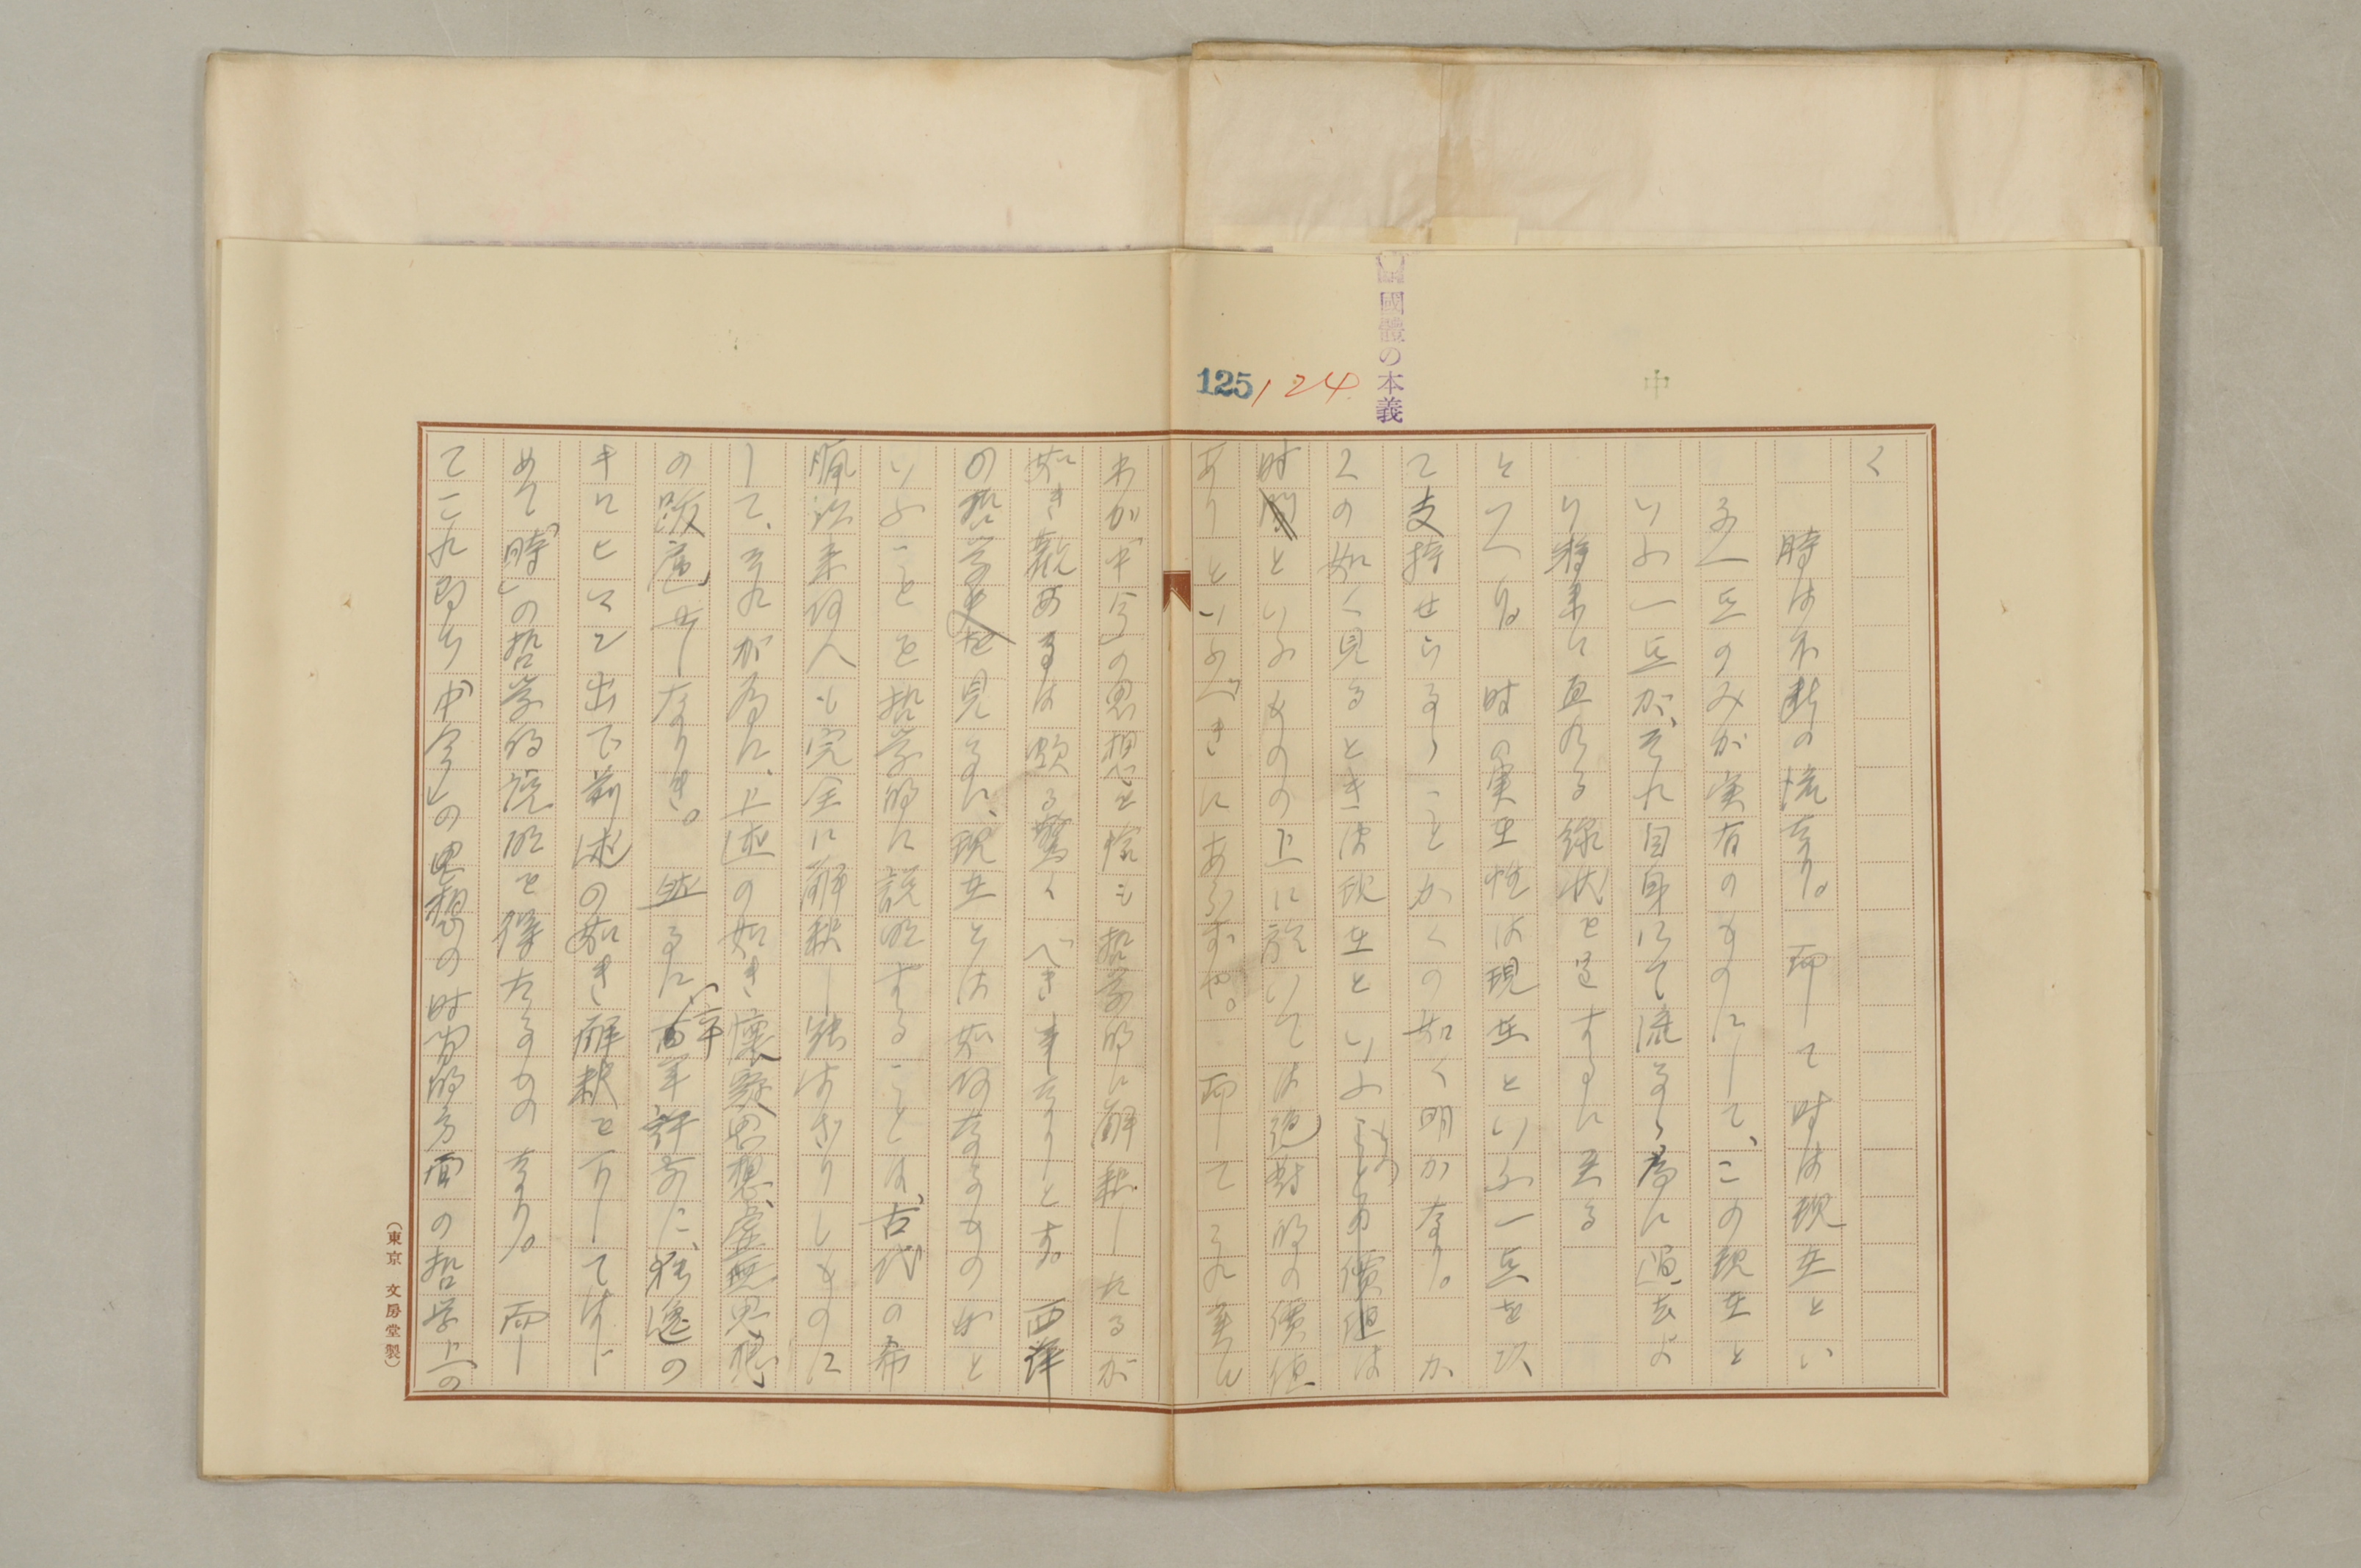 國體の本義
125
124
中
く
時は不断の流なり。而して時は現在とい
ふ一点のみが実有のものにして、この現在と
いふ一点が、それ自身にて流るゝ為に過去よ
り将来に直れる線状を呈するに至る
といへり。時の実在性は現在といふ一点を以
て支持せらるゝことかくの如く明かなり。か
くの如く見るときは現在といふものの價値は
時といふものの上に於いては絶對的の價値
ありといふべきにあらずや。而してこれ実に
わが「中今」の思想を恰も哲学的に解釈したるが
如き觀あるは頗る驚くべき事なりとす。西洋
の哲学を見るに、現在とは如何なるものかと
いふことを哲学的に説明することは、古代の希
臘以来何人も完全に解釈し能はざりしものに
して、それが為に、上述の如き懐疑思想、虚無思想
の跋扈せしなりき。然るに、年許前に、獨逸の
キヒニて出で前述の如き解釈を下してはじ
めて「時」の哲学的説明を得たるものなり。而し
てこれ即ち「中今」の思想の时间的方面の哲学上の
(東京 文房堂製)